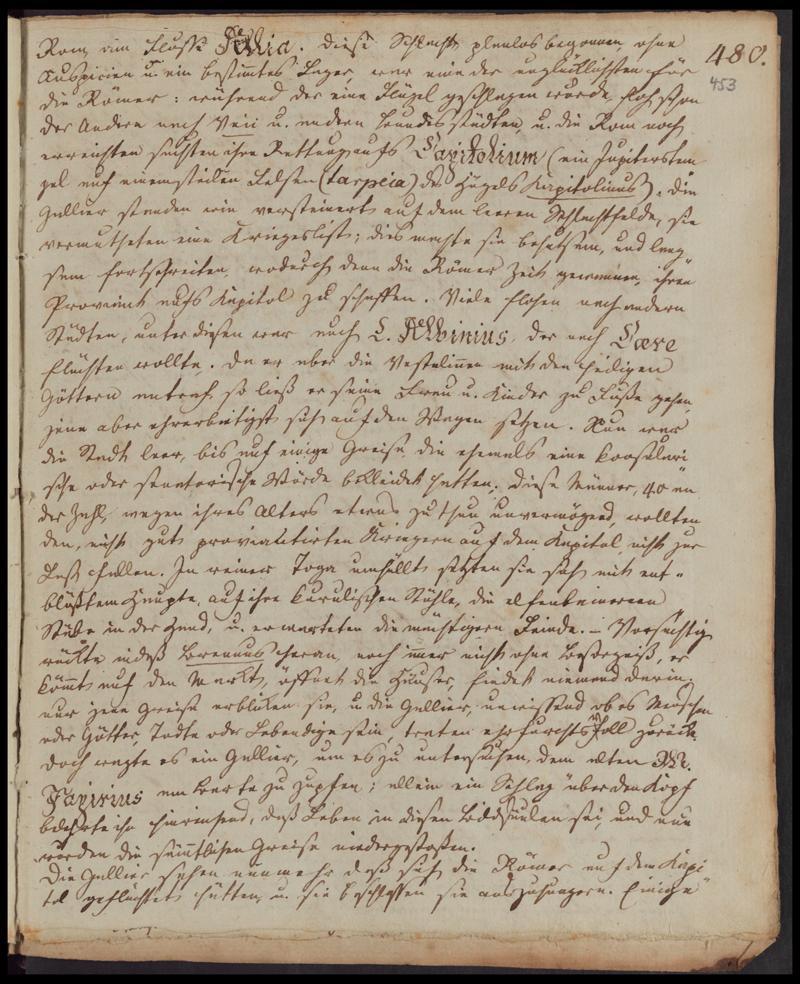 480.
453
Rom am Flusse Allia. Diese Schlacht planlos begonnen, ohne
Auspicien u. ein bestimmtes Lager, war eine der unglücklichsten für
die Römer: während der eine Flügel geschlagen wurde, floh schon
der Andere nach Veii u. andern Bundesstädten, u. die Rom noch
erreichten suchten ihre Rettung aufs Capitolium (ein Jupiterstem
pel auf einem steilen Felsen (tarpeia) des Hügels Kapitolinus). Die
Gallier standen wie versteinert auf dem leeren Schlachtfelde, sie
vermutheten eine Kriegeslist; dies machte sie behutsam, und lang"
sam fortschreiten, wodurch denn die Römer Zeit gewannen, ihren
Proviant aufs Kapitol zu schaffen. Viele flohen nach andern
Städten, unter diesen war auch L. Albinius, der nach Caere
flüchten wollte. Da er aber die Vestalinnen mit den heiligen
Göttern antraf, so ließ er seine Frau u. Kinder zu Fuße gehen,
jene aber ehrerbietigst sich auf den Wagen setzen. Nun war
die Stadt leer, bis auf einige Greise die ehemals eine Consulari
sche oder senatorische Würde bekleidet hatten. Diese Männer, 40 an
der Zahl, wegen ihres Alters etwas zu thun unvermögend, wollten
den, nicht gut proviantirten Kriegern auf dem Kapitol, nicht zur
Last fallen. In reiner Toga umhüllt setzten sie sich mit ent"
blößtem Haupte, auf ihre kurulischen Stühle, die elfenbeinernen
Stäbe in der Hand, u. erwarteten die mächtigern Feinde. – Vorsichtig
rückte indeß Brennus heran, noch immer nicht ohne Besorgniß, er
kömmt auf den Markt, öffnet die Häuser, findet niemand darin;
nur jene Greise erblicken sie, u. die Gallier, unwissend ob es Menschen
oder Götter, Todte oder Lebendige sein, traten ehrfurchtsvoll zurück.
Doch wagte es ein Gallier, um es zu untersuchen, dem alten M.
Papirius am Barte zu zupfen; allein ein Schlag über den Kopf
belehrte ihn hinreichend, daß Leben in diesen Bildsäulen sei, und nun
wurden die sämmtlichen Greise niedergestoßen.
Die Gallier sahen nunmehr daß sich die Römer auf dem Kapi
tol geflüchtet hätten, u. sie beschlossen sie auszuhungern. Einige"